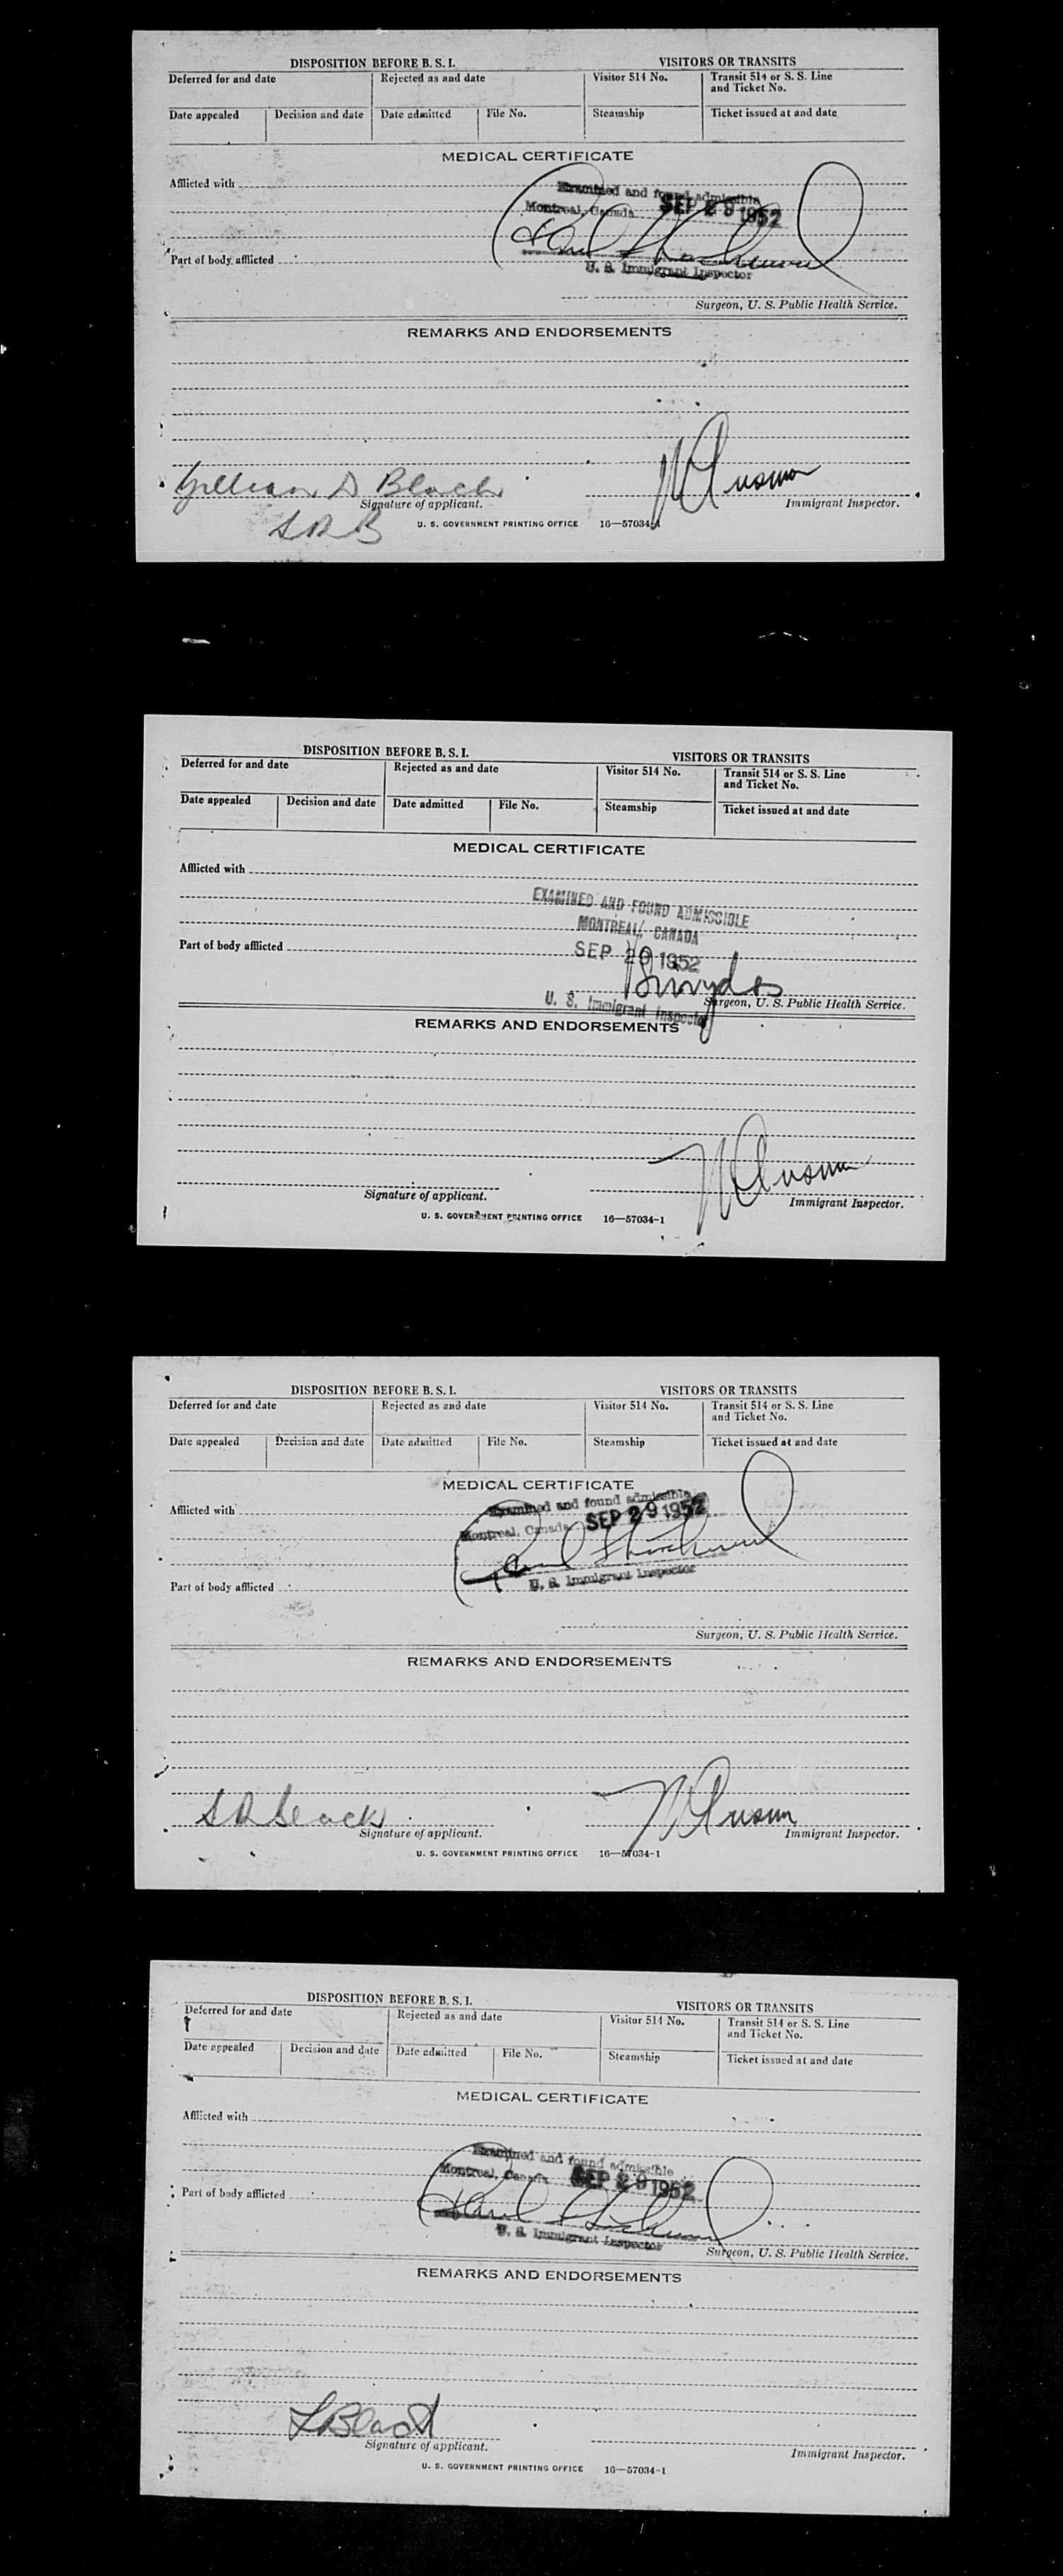 DISPOSITION BEFORE B. S. I. VISITORS OR TRANSITS
Deferred for and date Rejected as and date Visitor 514 No. Transit 514 or S. S. Line and Ticket No.
Date appealed Decision and date Date admitted File No. Steamship Ticket issued at and date
MEDICAL CERTIFICATE
Afflicted with
Examined and found admissible
Montreal, Canada SEP 29 1952
Part of body afflicted
U. S. Immigrant Inspector
Surgeon, U. S. Public Health Service.
REMARKS AND ENDORSEMENTS
Gillian D Black
Signature of applicant. Immigrant Inspector.
U. S. GOVERNMENT PRINTING OFFICE 16—57034-1
DISPOSITION BEFORE B. S. I. VISITORS OR TRANSITS
Deferred for and date Rejected as and date Visitor 514 No. Transit 514 or S. S. Line and Ticket No.
Date appealed Decision and date Date admitted File No. Steamship Ticket issued at and date
MEDICAL CERTIFICATE
Afflicted with
EXAMINED AND FOUND ADMISSIBLE
MONTREAL, CANADA
Part of body afflicted SEP 29 1952
Surgeon, U. S. Public Health Service.
U. S. Immigrant Inspector
REMARKS AND ENDORSEMENTS
Signature of applicant. Immigrant Inspector.
U. S. GOVERNMENT PRINTING OFFICE 16—57034-1
DISPOSITION BEFORE B. S. I. VISITORS OR TRANSITS
Deferred for and date Rejected as and date Visitor 514 No. Transit 514 or S. S. Line and Ticket No.
Date appealed Decision and date Date admitted File No. Steamship Ticket issued at and date
MEDICAL CERTIFICATE
Afflicted with Examined and found admissible
Montreal, Canada SEP 29 1952
U. S. Immigrant Inspector
Part of body afflicted
Surgeon, U. S. Public Health Service.
REMARKS AND ENDORSEMENTS
Black
Signature of applicant. Immigrant Inspector.
U. S. GOVERNMENT PRINTING OFFICE 16—57034-1
DISPOSITION BEFORE B. S. I. VISITORS OR TRANSITS
Deferred for and date Rejected as and date Visitor 514 No. Transit 514 or S. S. Line and Ticket No.
Date appealed Decision and date Date admitted File No. Steamship Ticket issued at and date
MEDICAL CERTIFICATE
Afflicted with
Examined and found admissible
Montreal, Canada SEP 29 1952
Part of body afflicted
U. S. Immigrant Inspector
Surgeon, U. S. Public Health Service.
REMARKS AND ENDORSEMENTS
Black
Signature of applicant. Immigrant Inspector.
U. S. GOVERNMENT PRINTING OFFICE 16—57034-1